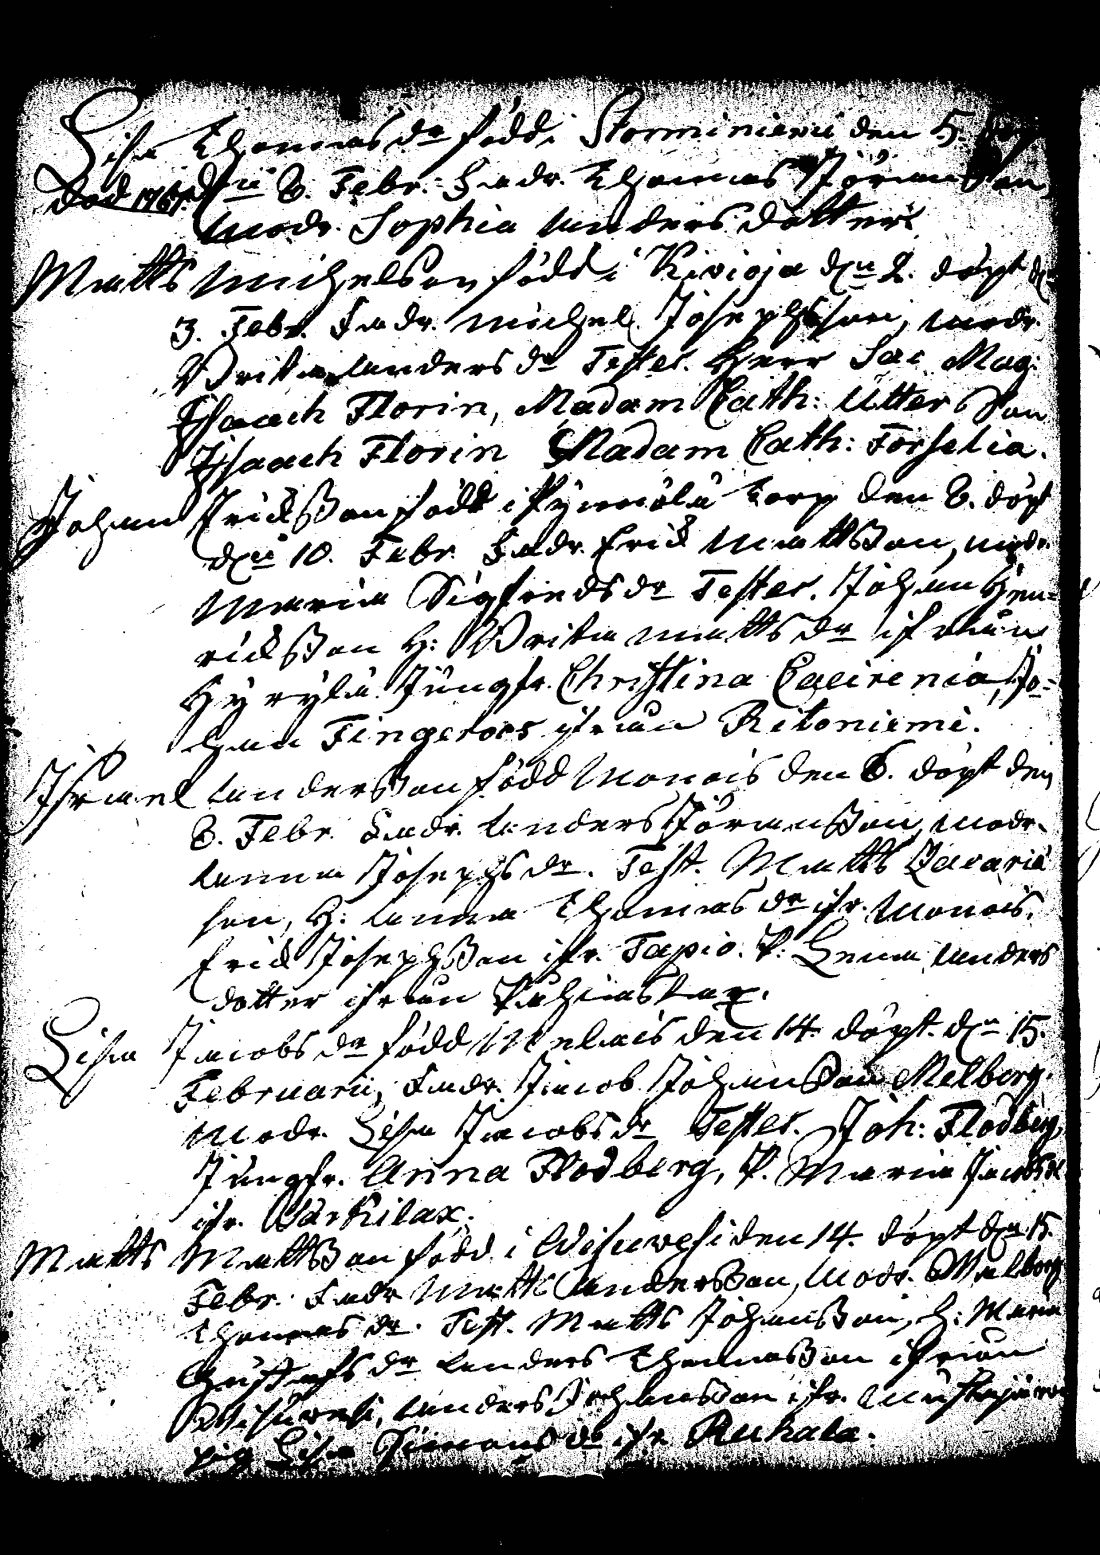 Lisa Thomasdr född i Storminiemi den 5.
död 1767. den 8. Febr. Fadr. Thomas Jöransson,
modr. Sophia Andersdotter
Matts Michelson född i Kivioja dn 2. döpt dn
3. Febr. Fadr. Michel Josephson, modr.
Brita Andersdr Testes. Herr Sac. Mag.
Isaach Florin, Madam Cath: Utter, Son
Isaach Florin Madam Cath: Forselia.
Johan Ericksson född i torp den 8. döpt
den 10. Febr. Fadr. Erick Mattsson, modr.
Maria Sigfredsdr Testes. Johan Hen-
ricksson h: Brita Mattsdr ifrån
Hyrylä Jungfr. Christina Caeirenia, Jo-
han Fingeroos ifrån Ritoniemi.
Israel Andersson född Monois den 6. döpt den
8. Febr. Fadr. Anders Jöransson, modr.
Anna Josephsdr. Test. Matts Zacaria
son, h: Anna Thomasdr ifr. Monois.
Erick Josephsson ifr. Tapio. P: Lena Anders
dotter ifrån
Lisa Jacobsdr född Melais den 14. döpt dn 15.
Februarii, Fadr. Jacob Johansson Melberg.
Modr. Lisa Jacobsdr Testes. Joh: Flodberg,
Jungfr. Anna Flodberg, P. Maria Jacobsdr
ifr. Warkilax.
Matts Mattsson född i Wisuvesi den 14. döpt dn 15.
Febr. Fadr Matts Andersson, Modr. Walborg
Thomasdr. Test. Matts Johansson, h: Maria
Gustafsdr Anders Thomasson ifrån
Wisuvesi, Anders Johansson ifr.
pig Lisa Simonsdr ifr Ruhala.